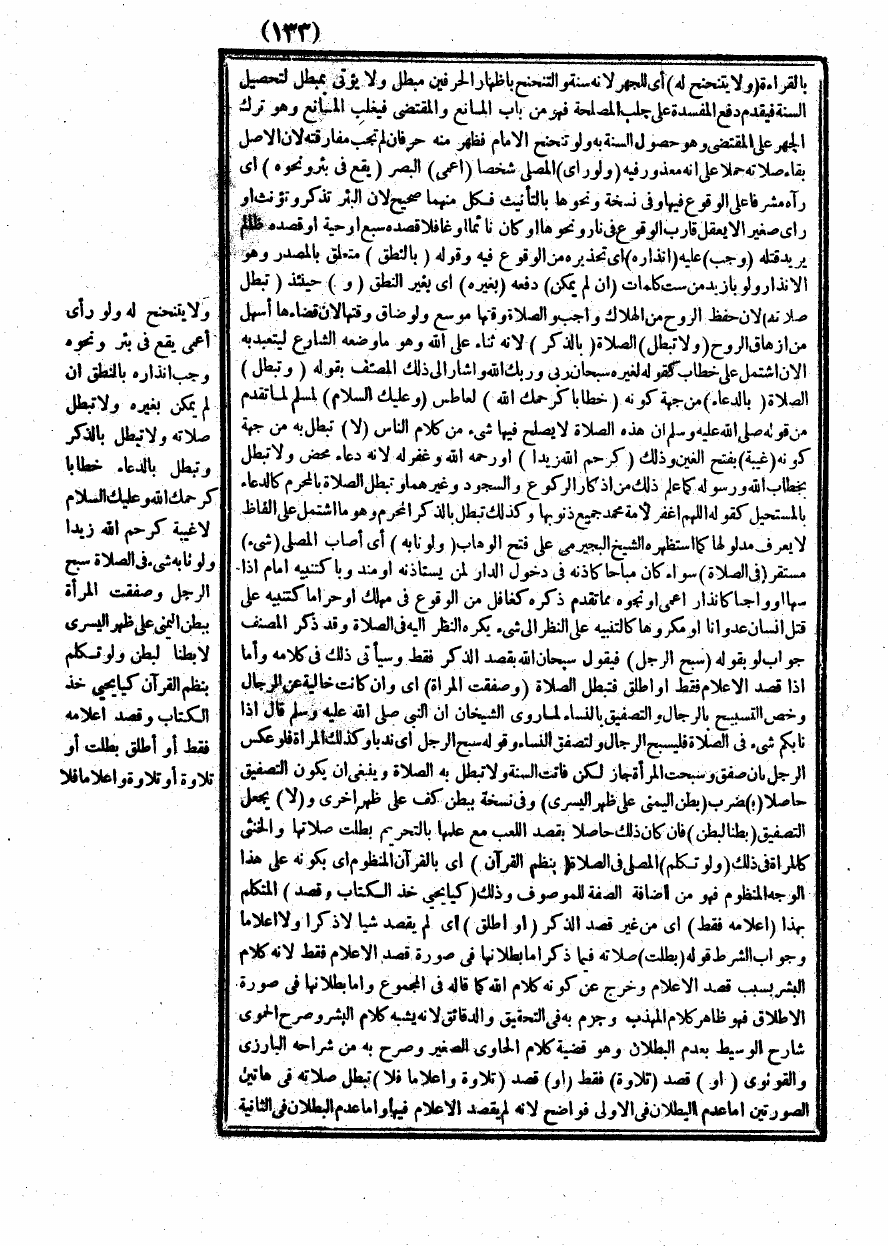 (١٣٣)
بالقراءة(ولا يتنحنح له)أى للجهر لانه سنة والتنحنح باظهار الحرفين مبطل ولا يؤتى بمبطل لتحصيل
السنة فيقدم دفع المفسدة على جلب المصلحة فهو من باب المانع والمقتضى فيغلب المانع وهو ترك
الجهر على المقتضى وهو حصول السنة به ولو تنحنح الامام فظهر منه حرفان لم تجب مفارقته لان الاصل
بقاء صلاته حملا على انه معذور فيه(ولو راى)المصلى شخصا (اعمى) البصر (يقع فى بئر ونحوه) اى
رآه مشرفا على الوقوع فيها وفى نسخة ونحوها بالتأنيث فكل منهما صحيح لان البئر تذكر وتؤنث او
راى صغيرا لا يعقل قارب الوقوع فى نار ونحوها او كان نائما او غافلا قصده سبع او حية او قصده ظالم
يريد قتله (وجب)عليه(انذاره)اى تحذيره من الوقوع فيه وقوله (بالنطق) متعلق بالمصدر وهو
الانذار ولو بازيد من ست كلمات (ان لم يمكن) دفعه (بغيره) اى بغير النطق (و) حينئذ (تبطل
صلاته)لان حفظ الروح من الهلاك واجب والصلاة وقتها موسع ولو ضاق وقتها لان قضاءها أسهل
من ازهاق الروح(ولا تبطل)الصلاة(بالذكر) لانه ثناء على الله وهو ما وضعه الشارع ليتعبد به
الا ان اشتمل على خطاب كقوله لغيره سبحان ربى وربك الله واشار الى ذلك المصنف بقوله (وتبطل)
الصلاة(بالدعاء)من جهة كونه (خطابا كرحمك الله) لعاطس (وعليك السلام) لمسلم لما تقدم
من قوله صلى الله عليه وسلم ان هذه الصلاة لا يصلح فيها شىء من كلام الناس (لا) تبطل به من جهة
كونه(غيبة)بفتح الغين وذلك (كرحم الله زيدا) او رحمه الله وغفر له لانه دعاء محض ولا تبطل
بخطاب الله ورسوله كما علم ذلك من اذكار الركوع والسجود وغيرهما وتبطل الصلاة بالمحرم كالدعاء
بالمستحيل كقوله اللهم اغفر لامة محمد جميع ذنوبها وكذلك تبطل بالذكر المحرم وهو ما اشتمل على الفاظ
لا يعرف مدلولها كما استظهره الشيخ البجيرمى على فتح الوهاب(ولو نابه) أى أصاب المصلى(شىء)
مستقر(فى الصلاة)سواء كان مباحا كاذنه فى دخول الدار لمن يستاذنه او مندوبا كتنبيه امام اذا
سها او واجبا كانذار اعمى او نحوه مما تقدم ذكره كغافل من الوقوع فى مهلك او حراما كتنبيه على
قتل انسان عدوانا او مكروها كالتنبيه على النظر الى شىء يكره النظر اليه فى الصلاة وقد ذكر المصنف
جواب لو بقوله (سبح الرجل) فيقول سبحان الله بقصد الذكر فقط وسيأتى ذلك فى كلامه وأما
اذا قصد الاعلام فقط او اطلق فتبطل الصلاة (وصفقت المرأة) اى وان كانت خالية عن الرجال
وخص التسبيح بالرجال والتصفيق بالنساء لما روى الشيخان ان النبى صلى الله عليه وسلم قال اذا
نابكم شىء فى الصلاة فليسبح الرجال ولتصفق النساء وقوله سبح الرجل اى ندبا وكذلك المرأة فلو عكس
الرجل بان صفق وسبحت المرأة جاز لكن فاتت السنة ولا تبطل به الصلاة وينبغى ان يكون التصفيق
حاصلا(ب)ضرب(بطن اليمنى على ظهر اليسرى) وفى نسخة ببطن كف على ظهر اخرى و(لا) يجعل
التصفيق(بطنا لبطن)فان كان ذلك حاصلا بقصد اللعب مع علمها بالتحريم بطلت صلاتها والخنثى
كالمراة فى ذلك(ولو تكلم)المصلى فى الصلاة(بنظم القرآن) اى بالقرآن المنظوم اى بكونه على هذا
الوجه المنظوم فهو من اضافة الصفة للموصوف وذلك(كيا يحيى خذ الكتاب وقصد) المتكلم
بهذا (اعلامه فقط) اى من غير قصد الذكر (او اطلق)اى لم يقصد شيا لا ذكرا ولا اعلاما
وجواب الشرط قوله(بطلت)صلاته فيما ذكر اما بطلانها فى صورة قصد الاعلام فقط لانه كلام
البشر بسبب قصد الاعلام وخرج عن كونه كلام الله كما قاله فى المجموع واما بطلانها فى صورة
الاطلاق فهو ظاهر كلام المهذب وجزم به فى التحقيق والدقائق لانه يشبه كلام البشر وصرح الحموى
شارح الوسيط بعدم البطلان وهو قضية كلام الحاوى الصغير وصرح به من شراحه البارزى
والقونوى (او) قصد (تلاوة) فقط (او) قصد (تلاوة واعلاما فلا)تبطل صلاته فى هاتين
الصورتين اما عدم البطلان فى الاولى فواضح لانه لم يقصد الاعلام فيها واما عدم البطلان فى الثانية
ولا يتنحنح له ولو رأى
أعمى يقع فى بئر ونحوه
وجب انذاره بالنطق ان
لم يمكن بغيره ولا تبطل
صلاته ولا تبطل بالذكر
وتبطل بالدعاء خطابا
كرحمك الله وعليك السلام
لا غيبة كرحم الله زيدا
ولو نابه شىء فى الصلاة سبح
الرجل وصفقت المرأة
ببطن اليمنى على ظهر اليسرى
لا بطنا لبطن ولو تكلم
بنظم القرآن كيا يحيى خذ
الكتاب وقصد اعلامه
فقط أو أطلق بطلت أو
تلاوة أو تلاوة واعلاما فلا